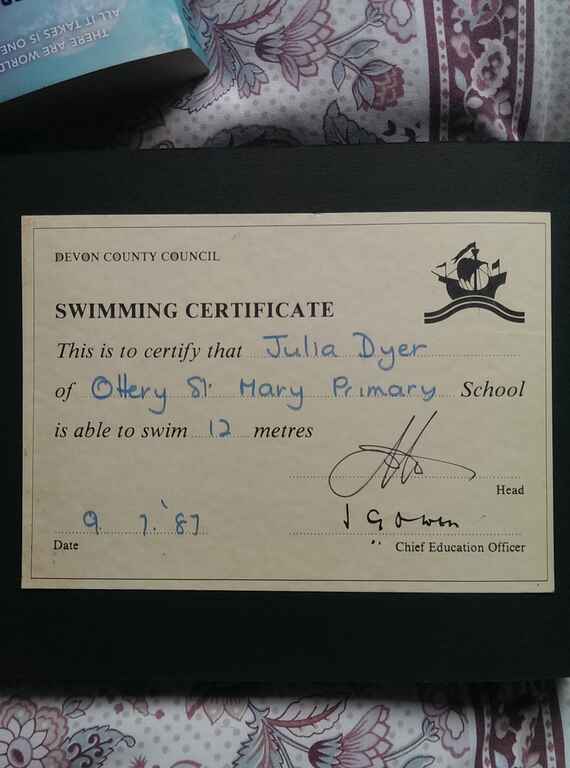 THERE ARE WORLD
ALL IT TAKES IS ONE
DEVON COUNTY COUNCIL
SWIMMING CERTIFICATE
This is to certify that Julia Dyer
of Ottery St. Mary Primary School
is able to swim 12 metres
Head
9. 7. '87
Date
Chief Education Officer